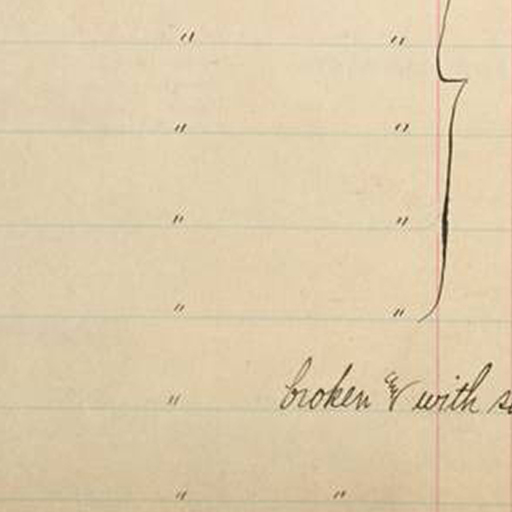 " "
" "
" "
" "
" broken & with
" "